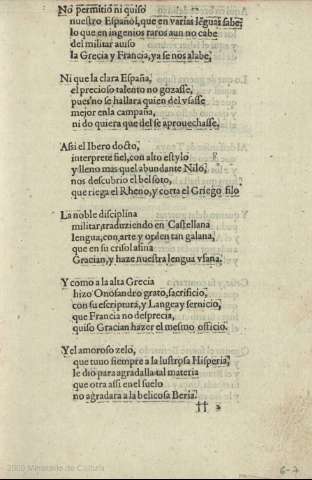 No permitió ni quiso
nuestro Español, que en varias lẽguas sabe,
lo que en ingenios raros aun no cabe
del militar auiso
la Grecia y Francia, ya se nos alabe,
Ni que la clara España,
el precioso talento no gozasse,
pues no se hallara quien del vsasse
mejor en la campaña,
ni do quiera que del se aprouechasse,
Assi el Ibero docto,
interprete fiel, con alto estylo
y lleno mas que l abundante Nilo,
nos descubrio el bel soto,
que riega el Rheno, y corta el Griego filo
La noble disciplina
militar, traduziendo en Castellana
lengua, con arte y orden tan galana,
que en su crisol afina
Gracian, y haze nuestra lengua vfana.
Y como a la alta Grecia
hizo Onosandro grato, sacrificio,
con su escriptura, y Langeay seruicio,
que Francia no desprecia,
quiso Gracian hazer el mesmo officio.
Y el amoroso zelo,
que tuuo siempre a la lustrosa Hisperia,
le dio para agradalla tal materia
que otra assi en el suelo
no agradara a la belicosa Beria.
†† 3
6-7
2009 Ministerio de Cultura